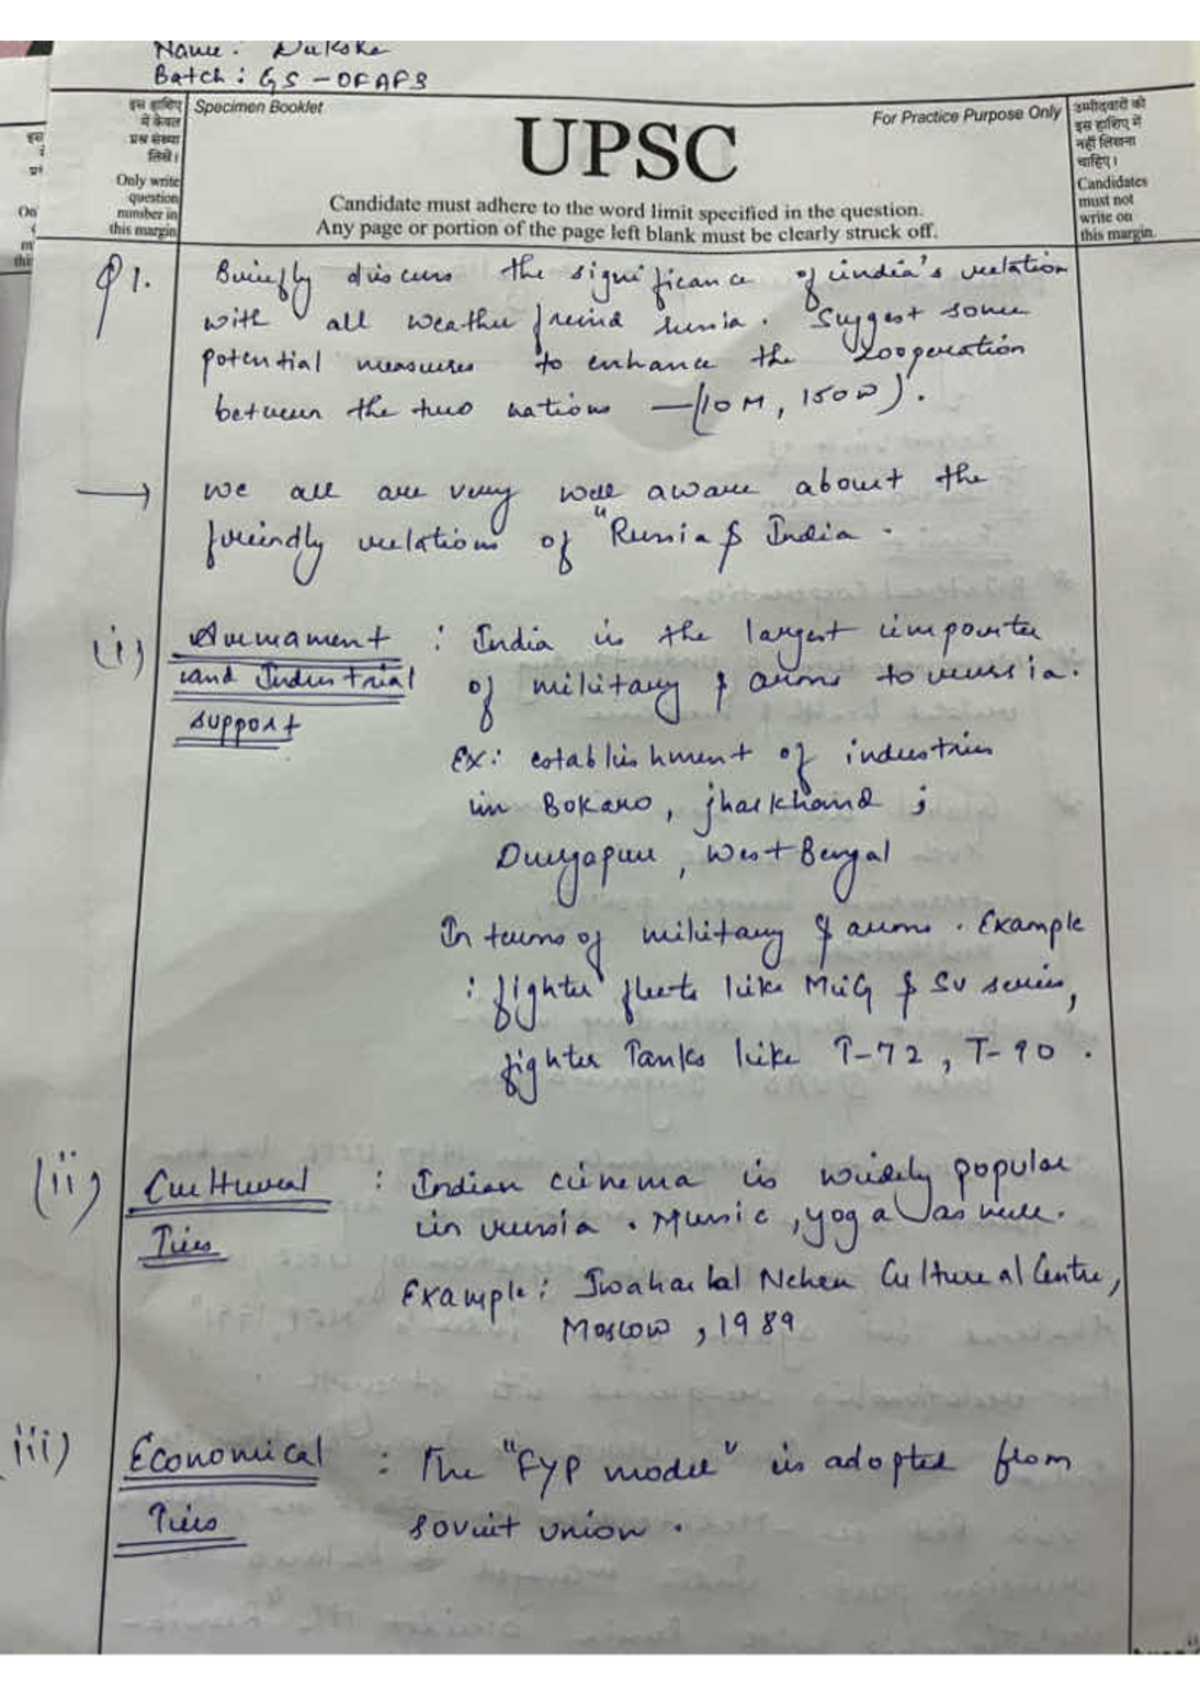 Name: Dukske
Batch: GS-OFAFB
इस हाशिए
में केवल
प्रश्न संख्या
लिखें।
Only write
question
number in
this margin
Specimen Booklet
For Practice Purpose Only
UPSC
Candidate must adhere to the word limit specified in the question.
Any page or portion of the page left blank must be clearly struck off.
उम्मीदवारों को
इस हाशिए में
नहीं लिखना
चाहिए।
Candidates
must not
write on
this margin.
Q1. Briefly discuss the significance of india's relation
with all weather freind russia. Suggest some
potential measures to enhance the cooperation
between the two nations —(10M, 150W).
→ We all are very well aware about the
freindly relations of "Russia & India.
(i) Armament : India is the largest importer
and Industrial of military & arms to russia.
support
Ex: establishment of industries
in Bokaro, jharkhand ;
Durgapur, West Bengal
In terms of military & arms. Example
: fighter fleets like MiG & SU series,
fighter Tanks like T-72, T-90.
(ii) Cultural : Indian cinema is widely popular
Ties in russia. Music, yoga as well.
Example: Jwaharlal Nehru Cultural Centre,
Moscow, 1989
iii) Economical : The "FYP model" is adopted from
Ties soviet union.